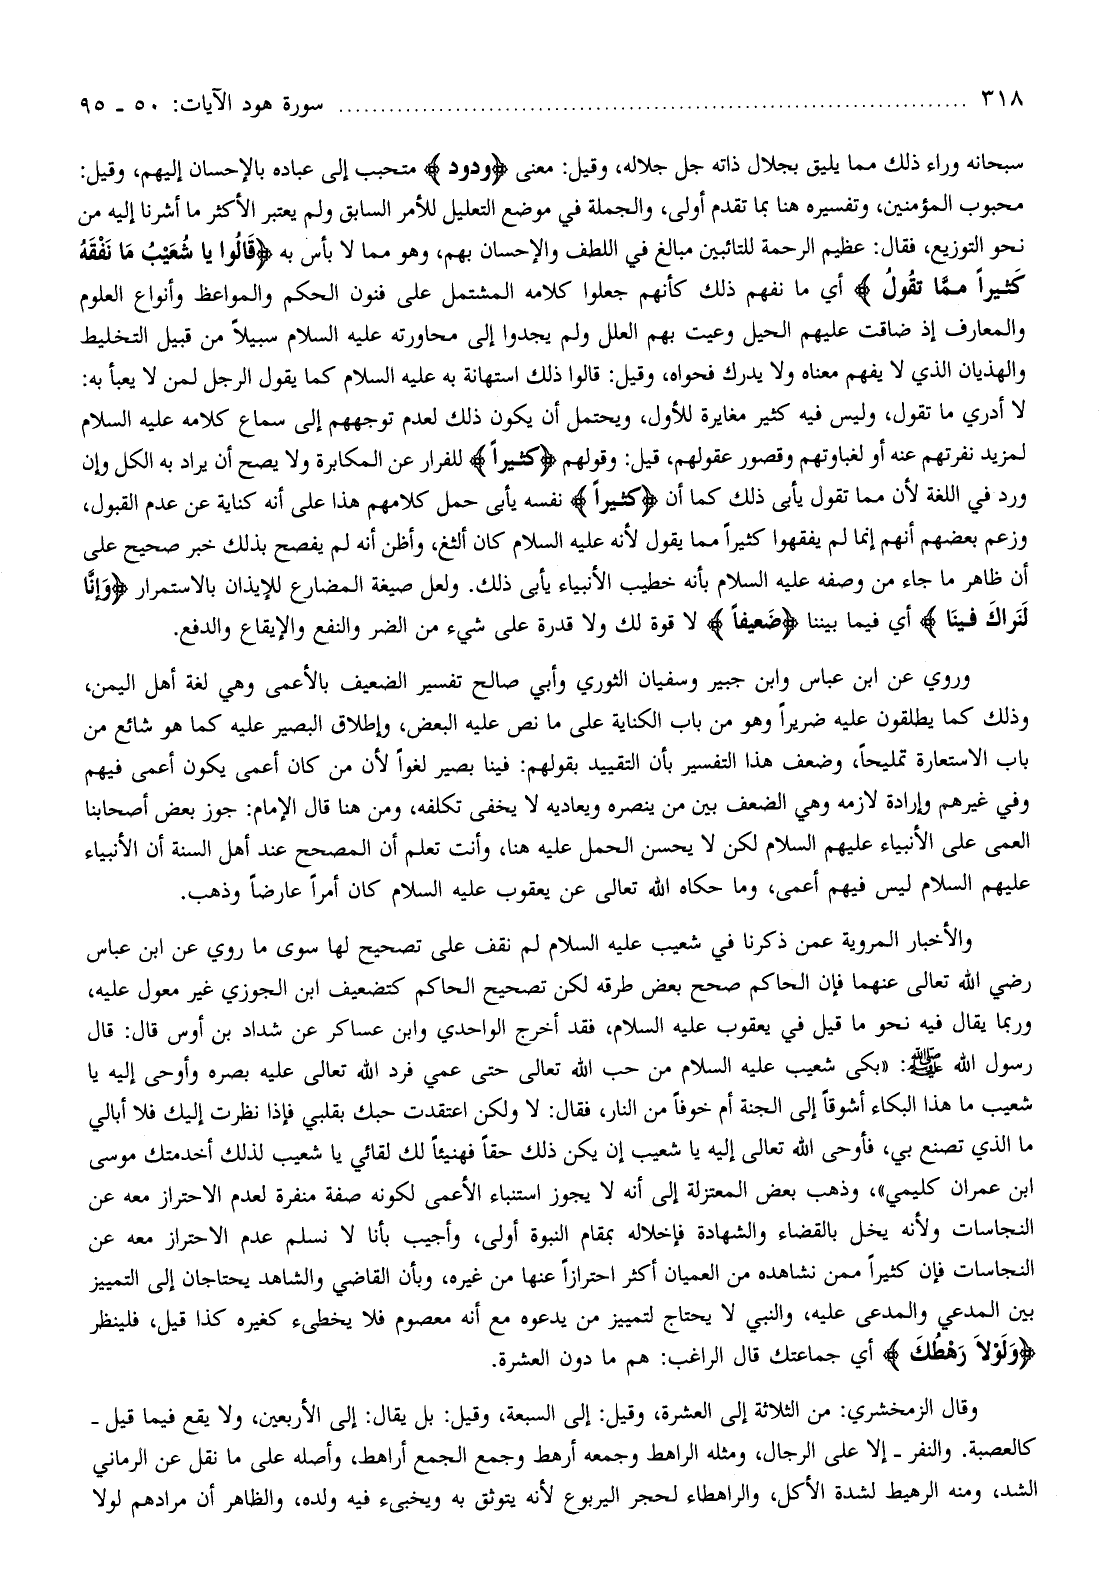 ٣١٨ ........................................................................... سورة هود الآيات: ٥٠ ـ ٩٥
سبحانه وراء ذلك مما يليق بجلال ذاته جل جلاله، وقيل: معنى ﴿ودود﴾ متحبب إلى عباده بالإحسان إليهم، وقيل:
محبوب المؤمنين، وتفسيره هنا بما تقدم أولى، والجملة في موضع التعليل للأمر السابق ولم يعتبر الأكثر ما أشرنا إليه من
نحو التوزيع، فقال: عظيم الرحمة للتائبين مبالغ في اللطف والإحسان بهم، وهو مما لا بأس به ﴿قَالُوا يا شُعَيْبُ مَا نَفْقَهُ
كَثيراً ممَّا تقُولُ﴾ أي ما نفهم ذلك كأنهم جعلوا كلامه المشتمل على فنون الحكم والمواعظ وأنواع العلوم
والمعارف إذ ضاقت عليهم الحيل وعيت بهم العلل ولم يجدوا إلى محاورته عليه السلام سبيلاً من قبيل التخليط
والهذيان الذي لا يفهم معناه ولا يدرك فحواه، وقيل: قالوا ذلك استهانة به عليه السلام كما يقول الرجل لمن لا يعبأ به:
لا أدري ما تقول، وليس فيه كثير مغايرة للأول، ويحتمل أن يكون ذلك لعدم توجههم إلى سماع كلامه عليه السلام
لمزيد نفرتهم عنه أو لغباوتهم وقصور عقولهم، قيل: وقولهم ﴿كثيراً﴾ للفرار عن المكابرة ولا يصح أن يراد به الكل وإن
ورد في اللغة لأن مما تقول يأبى ذلك كما أن ﴿كثيراً﴾ نفسه يأبى حمل كلامهم هذا على أنه كناية عن عدم القبول،
وزعم بعضهم أنهم إنما لم يفقهوا كثيراً مما يقول لأنه عليه السلام كان ألثغ، وأظن أنه لم يفصح بذلك خبر صحيح على
أن ظاهر ما جاء من وصفه عليه السلام بأنه خطيب الأنبياء يأبى ذلك. ولعل صيغة المضارع للإيذان بالاستمرار ﴿وَإنَّا
لَنَراكَ فينَا﴾ أي فيما بيننا ﴿ضَعيفاً﴾ لا قوة لك ولا قدرة على شيء من الضر والنفع والإيقاع والدفع.
وروي عن ابن عباس وابن جبير وسفيان الثوري وأبي صالح تفسير الضعيف بالأعمى وهي لغة أهل اليمن،
وذلك كما يطلقون عليه ضريراً وهو من باب الكناية على ما نص عليه البعض، وإطلاق البصير عليه كما هو شائع من
باب الاستعارة تمليحاً، وضعف هذا التفسير بأن التقييد بقولهم: فينا بصير لغواً لأن من كان أعمى يكون أعمى فيهم
وفي غيرهم وإرادة لازمه وهي الضعف بين من ينصره ويعاديه لا يخفى تكلفه، ومن هنا قال الإمام: جوز بعض أصحابنا
العمى على الأنبياء عليهم السلام لكن لا يحسن الحمل عليه هنا، وأنت تعلم أن المصحح عند أهل السنة أن الأنبياء
عليهم السلام ليس فيهم أعمى، وما حكاه الله تعالى عن يعقوب عليه السلام كان أمراً عارضاً وذهب.
والأخبار المروية عمن ذكرنا في شعيب عليه السلام لم نقف على تصحيح لها سوى ما روي عن ابن عباس
رضي الله تعالى عنهما فإن الحاكم صحح بعض طرقه لكن تصحيح الحاكم كتضعيف ابن الجوزي غير معول عليه،
وربما يقال فيه نحو ما قيل في يعقوب عليه السلام، فقد أخرج الواحدي وابن عساكر عن شداد بن أوس قال: قال
رسول الله ﷺ: «بكى شعيب عليه السلام من حب الله تعالى حتى عمي فرد الله تعالى عليه بصره وأوحى إليه يا
شعيب ما هذا البكاء أشوقاً إلى الجنة أم خوفاً من النار، فقال: لا ولكن اعتقدت حبك بقلبي فإذا نظرت إليك فلا أبالي
ما الذي تصنع بي، فأوحى الله تعالى إليه يا شعيب إن يكن ذلك حقاً فهنيئاً لك لقائي يا شعيب لذلك أخدمتك موسى
ابن عمران كليمي»، وذهب بعض المعتزلة إلى أنه لا يجوز استنباء الأعمى لكونه صفة منفرة لعدم الاحتراز معه عن
النجاسات ولأنه يخل بالقضاء والشهادة فإخلاله بمقام النبوة أولى، وأجيب بأنا لا نسلم عدم الاحتراز معه عن
النجاسات فإن كثيراً ممن نشاهده من العميان أكثر احترازاً عنها من غيره، وبأن القاضي والشاهد يحتاجان إلى التمييز
بين المدعي والمدعى عليه، والنبي لا يحتاج لتمييز من يدعوه مع أنه معصوم فلا يخطىء كغيره كذا قيل، فلينظر
﴿وَلَوْلاَ رَهْطُكَ﴾ أي جماعتك قال الراغب: هم ما دون العشرة.
وقال الزمخشري: من الثلاثة إلى العشرة، وقيل: إلى السبعة، وقيل: بل يقال: إلى الأربعين، ولا يقع فيما قيل ـ
كالعصبة. والنفر ـ إلا على الرجال، ومثله الراهط وجمعه أرهط وجمع الجمع أراهط، وأصله على ما نقل عن الرماني
الشد، ومنه الرهيط لشدة الأكل، والراهطاء لحجر اليربوع لأنه يتوثق به ويخبىء فيه ولده، والظاهر أن مرادهم لولا